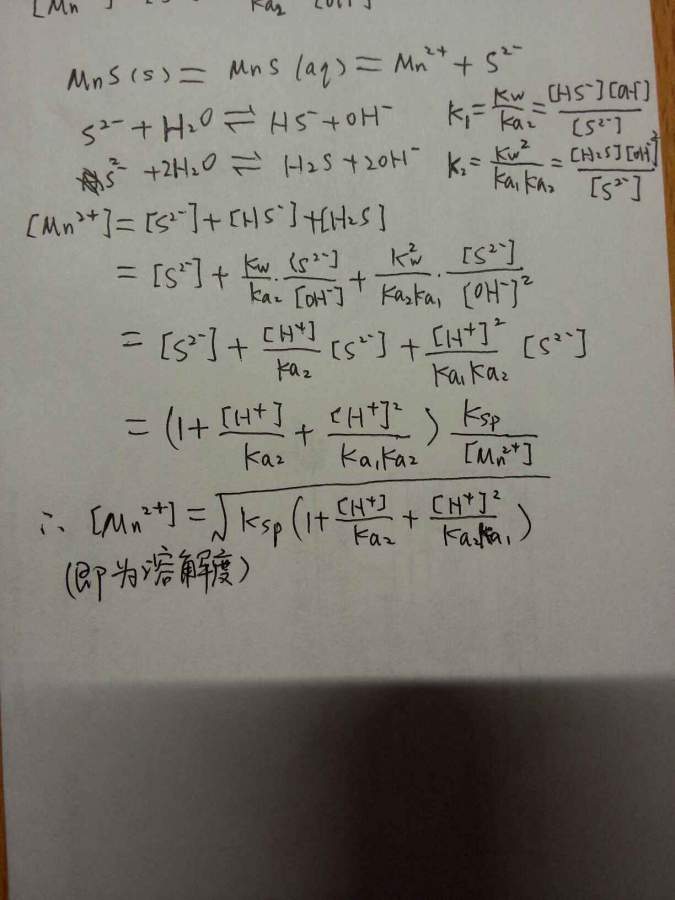 [Mn ka2 [OH]
MnS(s) = MnS(aq) = Mn²⁺ + S²⁻
S²⁻ + H₂O ⇌ HS⁻ + OH⁻ K₁ = Kw/Ka₂ = [HS⁻][OH⁻]/[S²⁻]
S²⁻ + 2H₂O ⇌ H₂S + 2OH⁻ K₂ = Kw²/Ka₁Ka₂ = [H₂S][OH⁻]²/[S²⁻]
[Mn²⁺] = [S²⁻] + [HS⁻] + [H₂S]
= [S²⁻] + Kw/Ka₂ · [S²⁻]/[OH⁻] + Kw²/Ka₂Ka₁ · [S²⁻]/[OH⁻]²
= [S²⁻] + [H⁺]/Ka₂ [S²⁻] + [H⁺]²/Ka₁Ka₂ [S²⁻]
= (1 + [H⁺]/Ka₂ + [H⁺]²/Ka₁Ka₂) Ksp/[Mn²⁺]
∴ [Mn²⁺] = √(Ksp(1 + [H⁺]/Ka₂ + [H⁺]²/Ka₂Ka₁))
(即为溶解度)